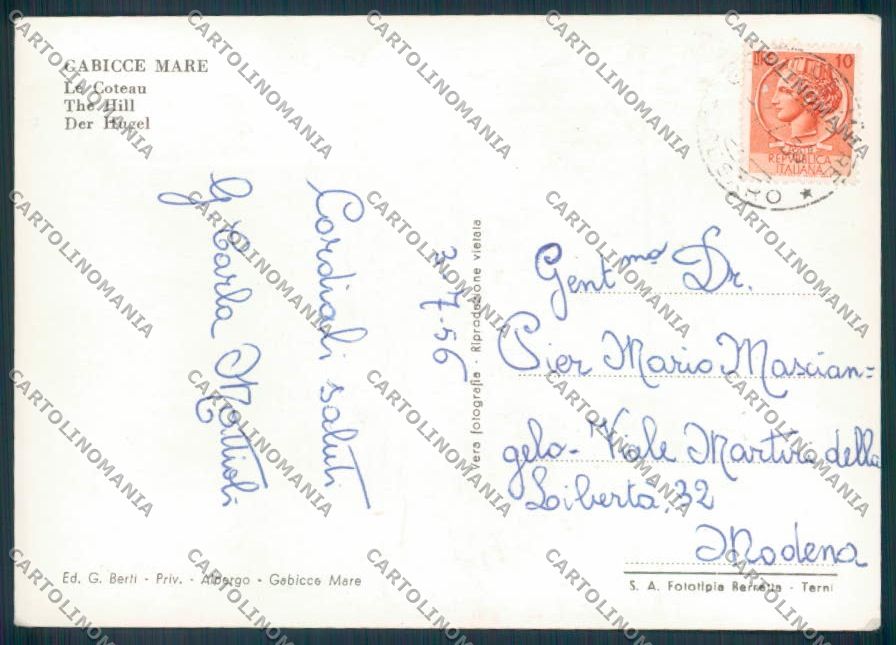 GABICCE MARE
Le Coteau
The Hill
Der Hügel
10
REPVBBLICA
ITALIANA
Cordiali saluti
G Carla Mattioli
3-7-56
Vera fotografia - Riproduzione vietata
Gent.ma Dr.
Pier Mario Mascian=
gelo - Viale Martiri della
Liberta, 32
Modena
Ed. G. Berti - Priv. - Albergo - Gabicce Mare
S. A. Fototipia Berretta - Terni
CARTOLINOMANIA